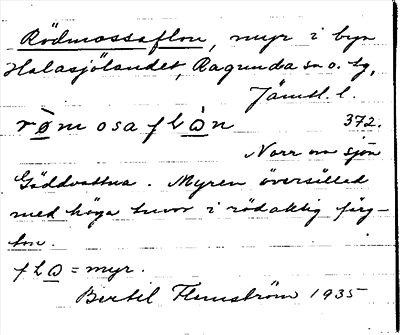 Rödmossaflon, myr i byn
Halasjölandet, Ragunda sn o. tg,
Jämtl. l.
römosaflon 372.
Norr om sjön
Gäddvattna. Myren översållad
med höga tuvor i rödaktig färg-
ton.
flo = myr.
Bertil Flemström 1935